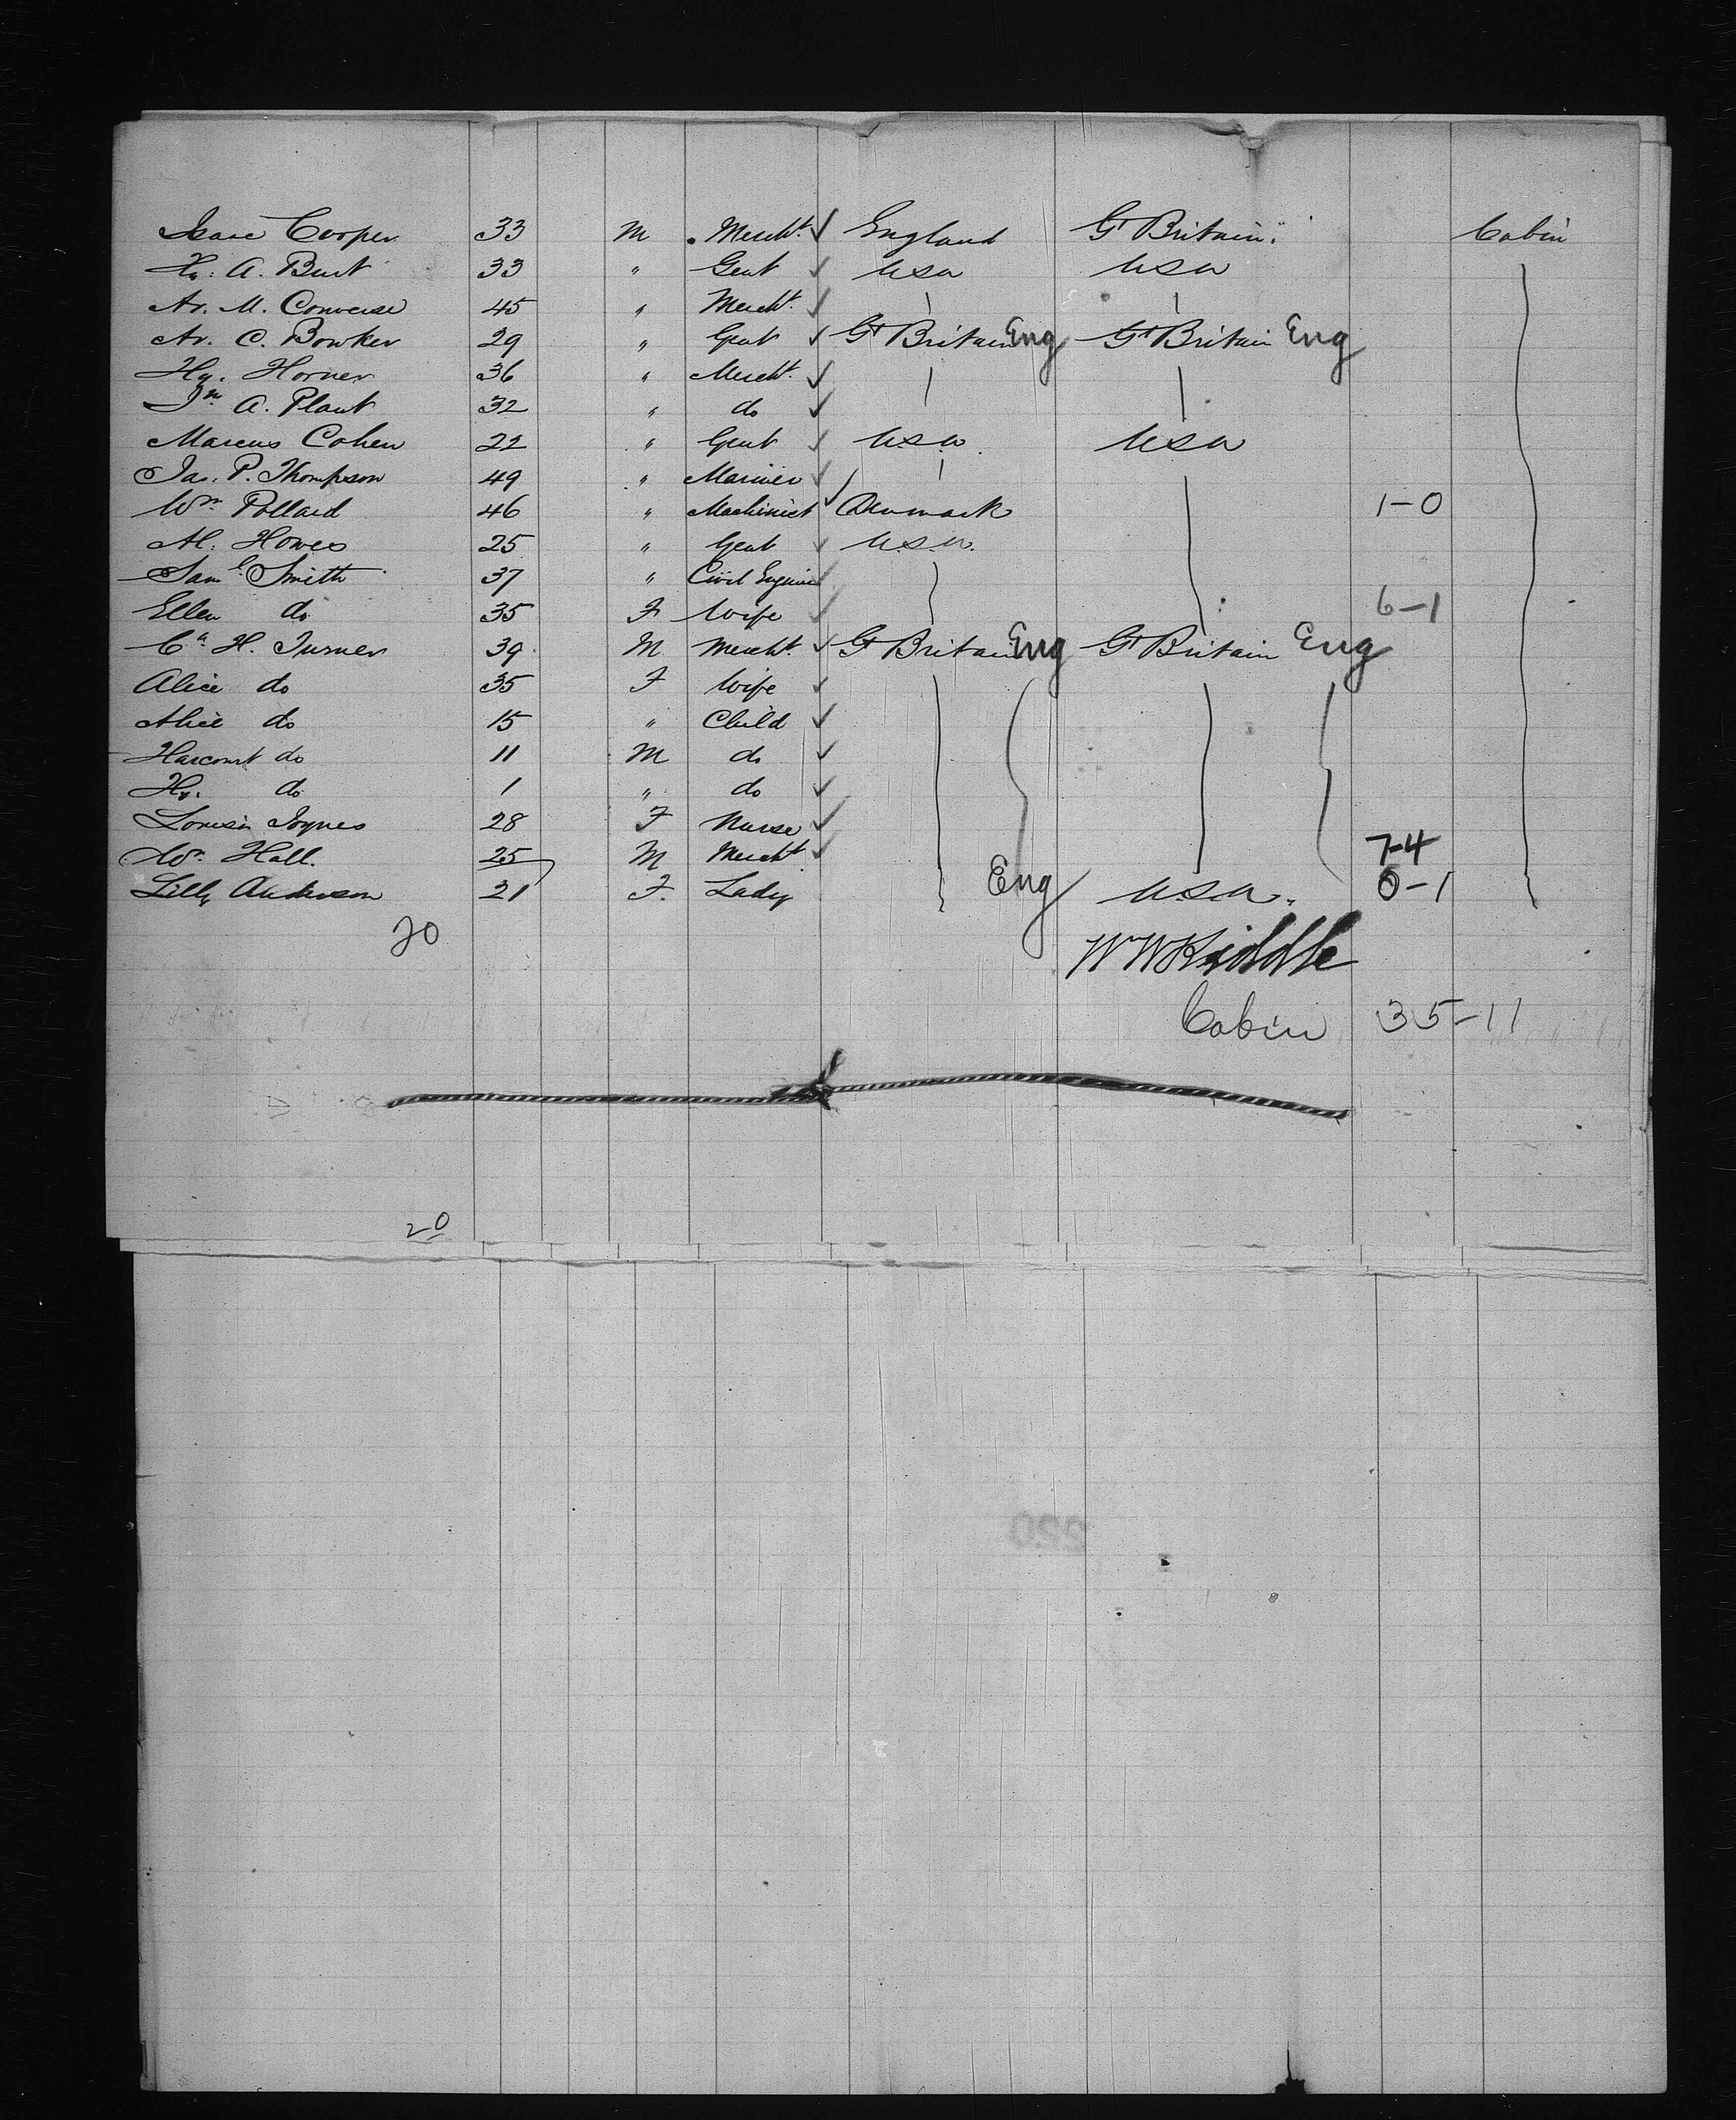 Isaac Cooper 33 M Mercht. England Gt Britain. Cabin
Hy. A. Burt 33 " Gent USA USA
Ar. M. Converse 45 " Mercht.
Ar. C. Bowker 29 " Gent Gt Britain Eng Gt Britain Eng
Hy. Horner 36 " Mercht.
Jno A. Plant 32 " do
Marcus Cohen 22 " Gent USA USA
Jas. P. Thompson 49 " Mariner
Wm Pollard 46 " Machinist Denmark 1-0
Al. Howes 25 " Gent U.S.A.
Saml Smith 37 " Civil Engineer
Ellen do 35 F Wife 6-1
Cs H. Turner 39 M Mercht. Gt Britain Eng Gt Britain Eng
Alice do 35 F Wife
Alice do 15 " Child
Harcourt do 11 M do
Hy. do 1 " do
Louisa Joynes 28 F Nurse
Wm. Hall. 25 M Mercht 7-4
Lilly Anderson 21 F. Lady Eng U.S.A. 0-1
20
WW Kiddle
Cabin 35-11
20